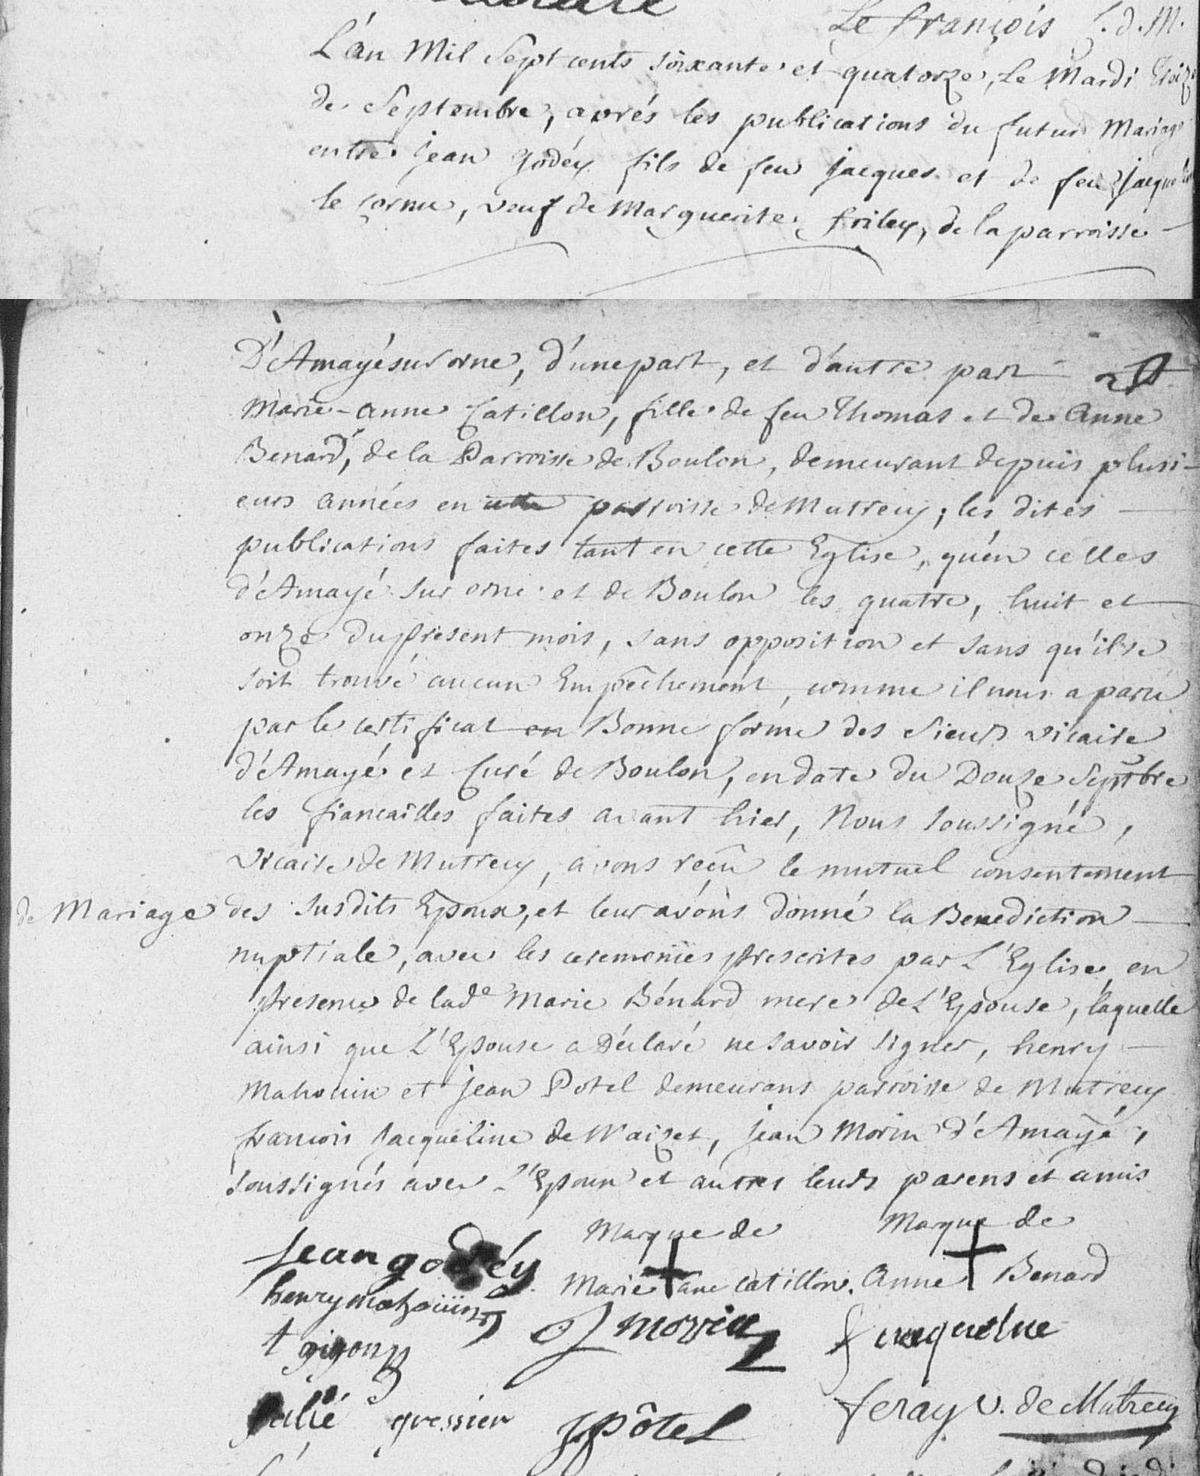 Le françois C. d. M.
L'án Mil Sept cents soixante et quatorze, Le Mardi
de Septembre, aprés les publications du futur Mariage
entre jean godéy fils de feu jacques et de feu
le cornu, veuf de Marguerite friley, de la parroisse
D'Amayésurorne, d'unepart, et d'autre part
Marie-anne Catillon, fille de feu Thomas et de Anne
Benard, de la Parroisse de Boulon, demeurant depuis plusi-
eurs années en parroisse de Mutrecy; les dites
publications faites tant en cette Eglise, qu'en celles
d'Amayé sur orne et de Boulon les quatre, huit et
onze du présent mois, sans opposition et sans qu'il se
soit trouvé aucun Empêchement, comme il nous a paru
par le certificat en Bonne forme des Sieurs vicaire
d'Amayé et Curé de Boulon, en date du Douze Septbre
les fiancailles faites avant hier, Nous soussigné,
vicaire de Mutrecy, avons reçu le mutuel consentement
de Mariage des susdits Epoux, et leur avons donné la Benediction
nuptiale, avec les ceremonies prescrites par L'Eglise en
presence de lade Marie Bénard mere de L'Epouse, laquelle
ainsi que L'Epouse a Déclaré ne savoir signer, henry
Mahouin et jean Potel demeurans parroisse de Mutrecy
francois Jacqueline de jean Morin d'Amayé,
soussignés avec L'Epoux et autres leurs parens et amis
Marque de Marque de
jean godéy Marie ane catillon. Anne Benard
henry mahouin J morin f jacqueline
t gigon
gressier J pôtel feray v. de Mutrecy